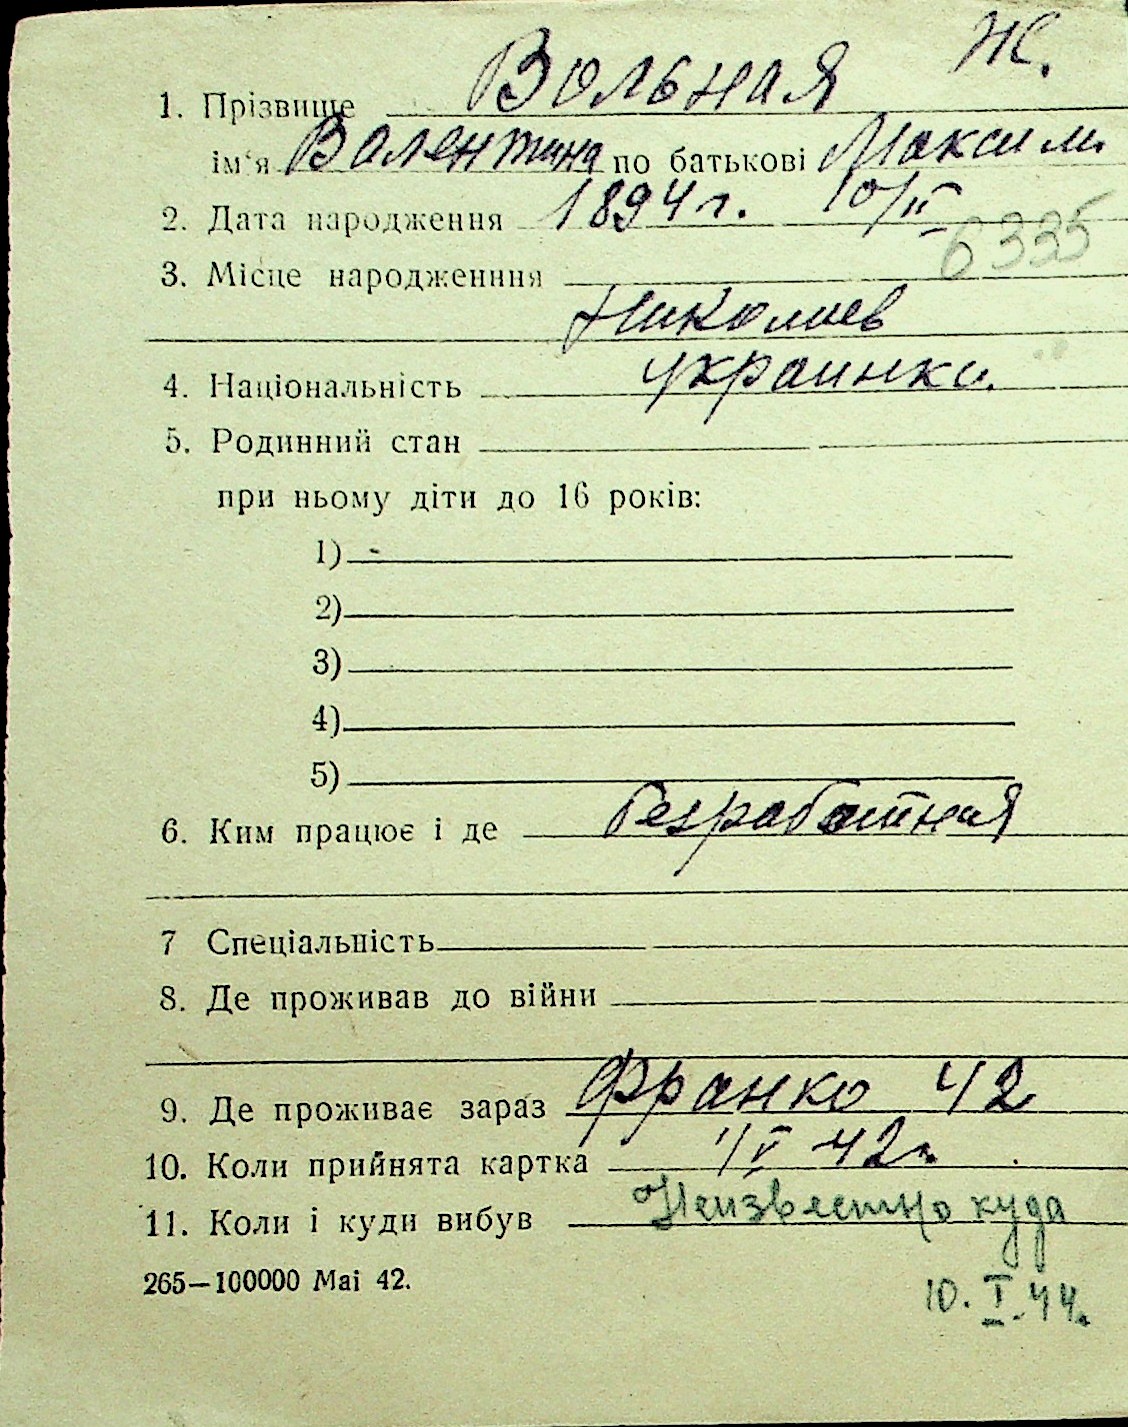 Ж.
1. Прізвище Вольная
ім‘я Валентина по батькові Максим.
2. Дата народження 1894 г. 10/II
6335
3. Місце народженння
Николаев
4. Національність украинка.
5. Родинний стан
при ньому діти до 16 років:
1) -
2)
3)
4)
5)
6. Ким працює і де безработная
7 Спеціальність
8. Де проживав до війни
9. Де проживає зараз Франко 42
10. Коли прийнята картка 1/V 42 г.
11. Коли і куди вибув Неизвестно куда
265—100000 Mai 42.
10. I. 44.